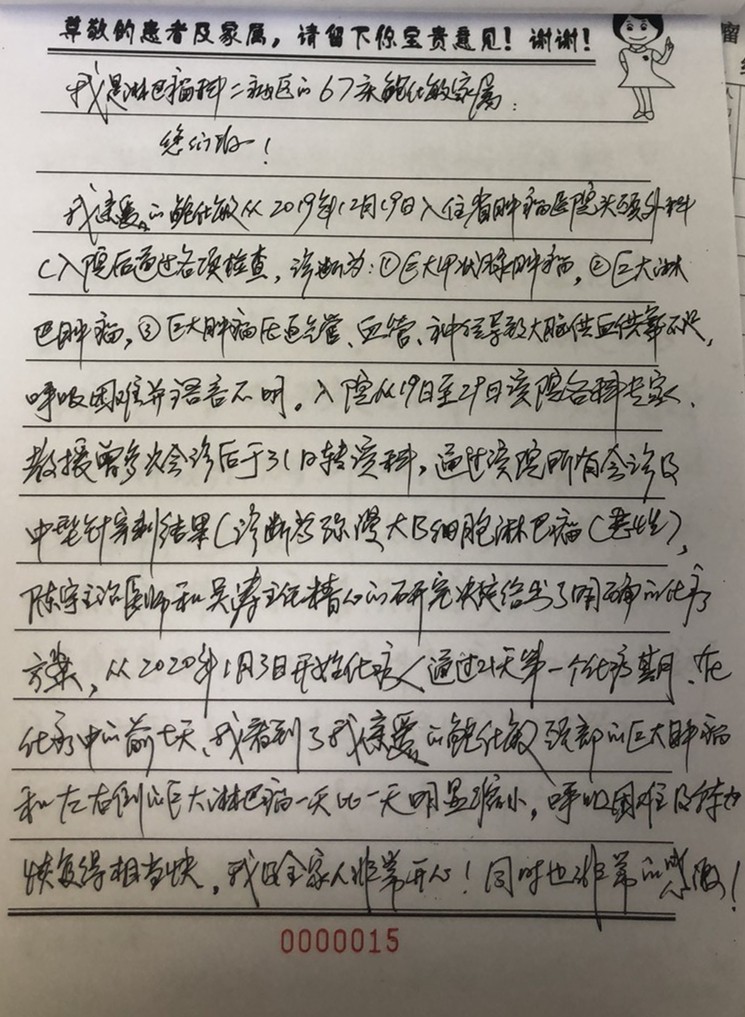 尊敬的患者及家属，请留下您宝贵意见！谢谢！
我是淋巴瘤科二病区的67床鲍仕敏家属：
您们好！
我亲爱的鲍仕敏从2019年12月19日入住省肿瘤医院头颈外科
（入院后通过各项检查，诊断为：①巨大甲状腺肿瘤，②巨大淋
巴肿瘤，③巨大肿瘤压迫气管、血管、神经导致大脑供血供氧不足，
呼吸困难并语言不明。入院从19日至29日该院各科专家、
教授曾多次会诊后于31日转该科，通过该院所有会诊及
中型针穿刺结果（诊断为弥漫大B细胞淋巴瘤（恶性），
陈宇主治医师和吴涛主任精心的研究决定给出了明确的化疗
方案，从2020年1月3日开始化疗（通过21天第一个化疗期，在
化疗中的前七天，我看到了我亲爱的鲍仕敏颈部的巨大肿瘤
和左右侧的巨大淋巴瘤一天比一天明显缩小，呼吸困难及体力
恢复得相当快，我及全家人非常开心！同时也非常的感激！
0000015
瘤